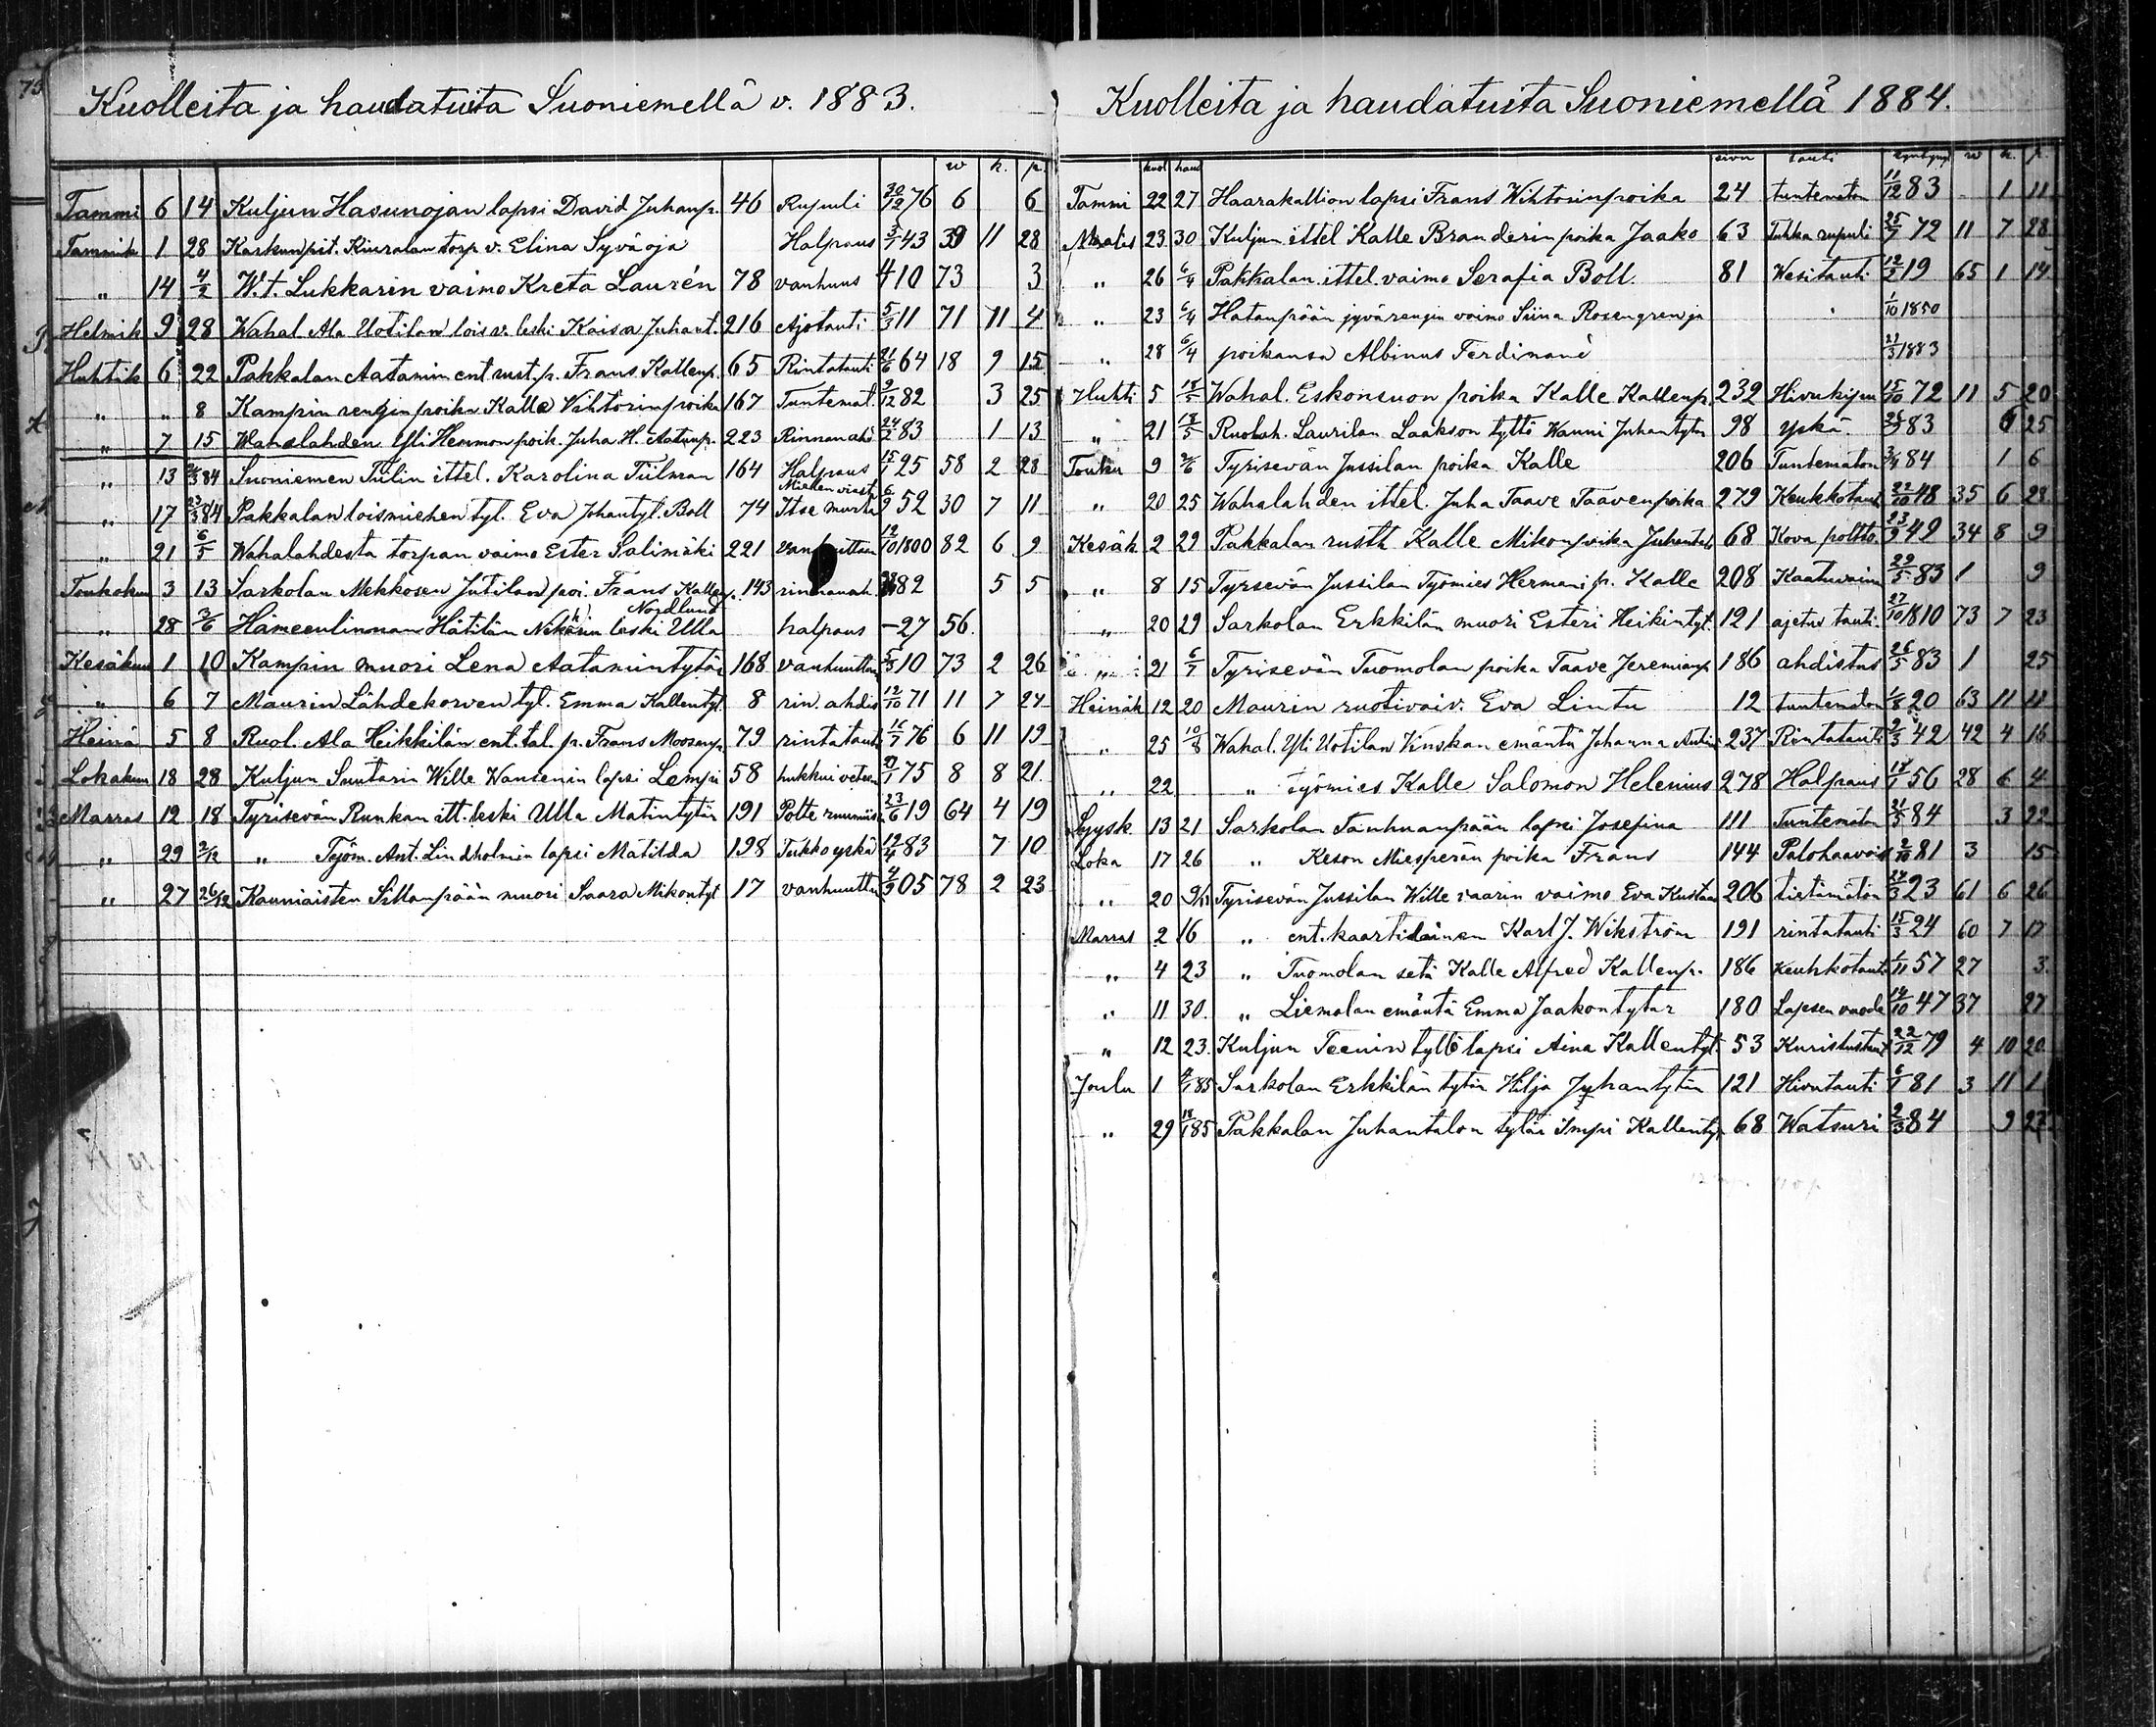 Kuolleita ja haudatuita Suoniemellä v. 1883.
w k. p.
Tammi 6 14 Kuljun Hasunojan lapsi David Juhanp. 46 Rupuli 30/12 76 6 6
Tammik 1 28 Karkun pit. Kiuralan torp. v. Elina Syväoja Halpaus 3/1 43 39 11 28
" 14 4/2 W.t. Lukkarin vaimo Kreta Laurén 78 vanhuus 10 73 3
Helmik 9 28 Wahal Ala Uotilan lois v. leski Kaisa Juhant. 216 Ajotauti 5/3 11 71 11 4
Huhtik 6 22 Pakkalan Aatamin ent rust. p. Frans Kallenp. 65 Rintatauti 21/6 64 18 9 15
" " 8 Kampin rengin poika Kalle Vihtorinpoika 167 Tuntemat. 9/12 82 3 25
" 7 15 Wahalahden Yli Hemmon poik. Juha H. Aatunp. 223 Rinnan ahd 24/2 83 1 13
" 13 84 Suoniemen Tiilin ittel. Karolina Tiilman 164 Halpaus 15/1 25 58 2 28
" 17 23/3 84 Pakkalan loismiehen tyt. Eva Johantyt. Boll 74 Mielen viasta Itse murha 6/9 52 30 7 11
" 21 6/5 Wahalahdesta torpan vaimo Ester Salimäki 221 12/10 1800 82 6 9
Toukokuu 3 13 Sarkolan Mekkosen Jutilan poi. Frans Kallenp. 143 82 5 5
" 28 3/6 Hämeenlinnan Hätilän leski Ulla Nordlund halpaus -27 56.
Kesäkuu 1 10 Kampin muori Lena Aatamintytär 168 vanhuuttaan 5/3 10 73 2 26
" 6 7 Maurin Lähdekorven tyt. Emma Kallentyt. 8 rin. ahdis 12/10 71 11 7 24
Heinä 5 8 Ruol. Ala Heikkilän ent. tal. p. Frans Moosenp. 79 rintatauti 16/7 76 6 11 19
Lokakuu 18 28 Kuljun Suutarin Wille Wansenin lapsi Lempi 58 hukkui veteen 27/1 75 8 8 21.
Marras 12 18 Tyrisevän Runkan itt. leski Ulla Matintytär 191 Polte ruumiissa 23/6 19 64 4 19
" 29 2/12 " Työm. Ant. Lindholmin lapsi Matilda 198 Tukko yskä 19/4 83 7 10
" 27 26/12 Kauniaisten Sillanpään muori Saara Mikontyt 17 vanhuuttaan 4/9 05 78 2 23
Kuolleita ja haudatuita Suoniemellä 1884.
kuol haud sivu tauti w k. p.
Tammi 22 27 Haarakallion lapsi Frans Wihtorinpoika 24 tuntematon 11/12 83 - 1 11
Maalis 23 30 Kuljun ittel Kalle Branderin poika Jaako 63 Tuhka rupuli 25/7 72 11 7 28
" 26 6/4 Pakkalan ittel. vaimo Serafia Boll. 81 Wesitauti 12/2 19 65 1 14
" 23 6/4 Hatanpään jyvärengin vaimo Siina Rosengren ja 1/10 1850
" 28 6/4 poikansa Albinus Ferdinand 21/3 1883
Huhti 5 18/5 Wahal. Eskonsuon poika Kalle Kallenp. 232 15/10 72 11 5 20
" 21 18/5 Ruolah. Laurilan Laakson tyttö Wanni Juhantytär 98 yskä. 83 25
Touko 9 2/6 Tyrisevän Jussilan poika Kalle 206 Tuntematon 3/4 84 1 6
" 20 25 Wahalahden ittel. Juha Taave Taavenpoika 279 Keuhkotaut 22/10 48 35 6 28
Kesäk 2 29 Pakkalan rusth Kalle Mikonpoika Juhantalo 68 Kova poltto. 23/9 49 34 8 9
" 8 15 Tyrsevän Jussilan Työmies Hermani p. Kalle 208 Kaatuvainen 29/5 83 1 9
" 20 29 Sarkolan Erkkilän muori Esteri Heikintyt. 121 ajetus tauti. 27/10 1810 73 7 23
" 21 6/7 Tyrisevän Tuomolan poika Taave Jeremianp. 186 ahdistus 26/5 83 1 25
Heinäk 12 20 Maurin ruotivaiv. Eva Lintu 12 tuntematon 1/8 20 63 11 11
" 25 10/8 Wahal. Yli Uotilan Vinskan emäntä Johanna Antin 237 Rintatauti 42 42 4 16
" 22 " työmies Kalle Salomon Helenius 278 Halpaus 18/1 56 28 6 4
Syysk. 13 21 Sarkolan Tanhuanpään lapsi Josefina 111 Tuntematon 21/5 84 3 22
Loka 17 26 " Keson Miesperän poika Frans 144 Palohaavois 2/10 81 3 15
" 20 9/11 Tyrisevän Jussilan Wille vaarin vaimo Eva Kustaa 206 tietämätön 24/3 23 61 6 26
Marras 2 16 " ent. kaartilainen Karl J. Wikström 191 rintatauti 15/3 24 60 7 17
" 4 23 " Tuomolan setä Kalle Alfred Kallenp. 186 keuhkotauti 1/11 57 27 3.
" 11 30. " Liemolan emäntä Emma Jaakontytar 180 Lapsen vuode 14/10 47 37 27
" 12 23. Kuljun Teenin tyttö lapsi Aina Kallentyt. 53 Kuristustaut 22/12 79 4 10 20
Joulu 1 4/1 85 Sarkolan Erkkilän tytär Hilja Juhantytär 121 Hivutauti 6/1 81 3 11 1
" 29 18/1 85 Pakkalan Juhantalon tytär Impi Kallentyt 68 Watsuri 2/3 84 9 27